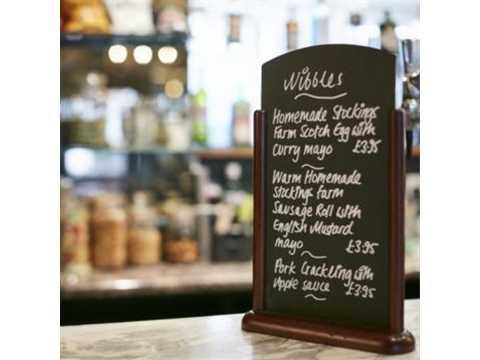 Nibbles
Homemade Stockings
Farm Scotch Egg with
Curry mayo £3.95
Warm Homemade
Stockings Farm
Sausage Roll with
English Mustard
mayo £3.95
Pork Crackling with
Apple sauce £3.95